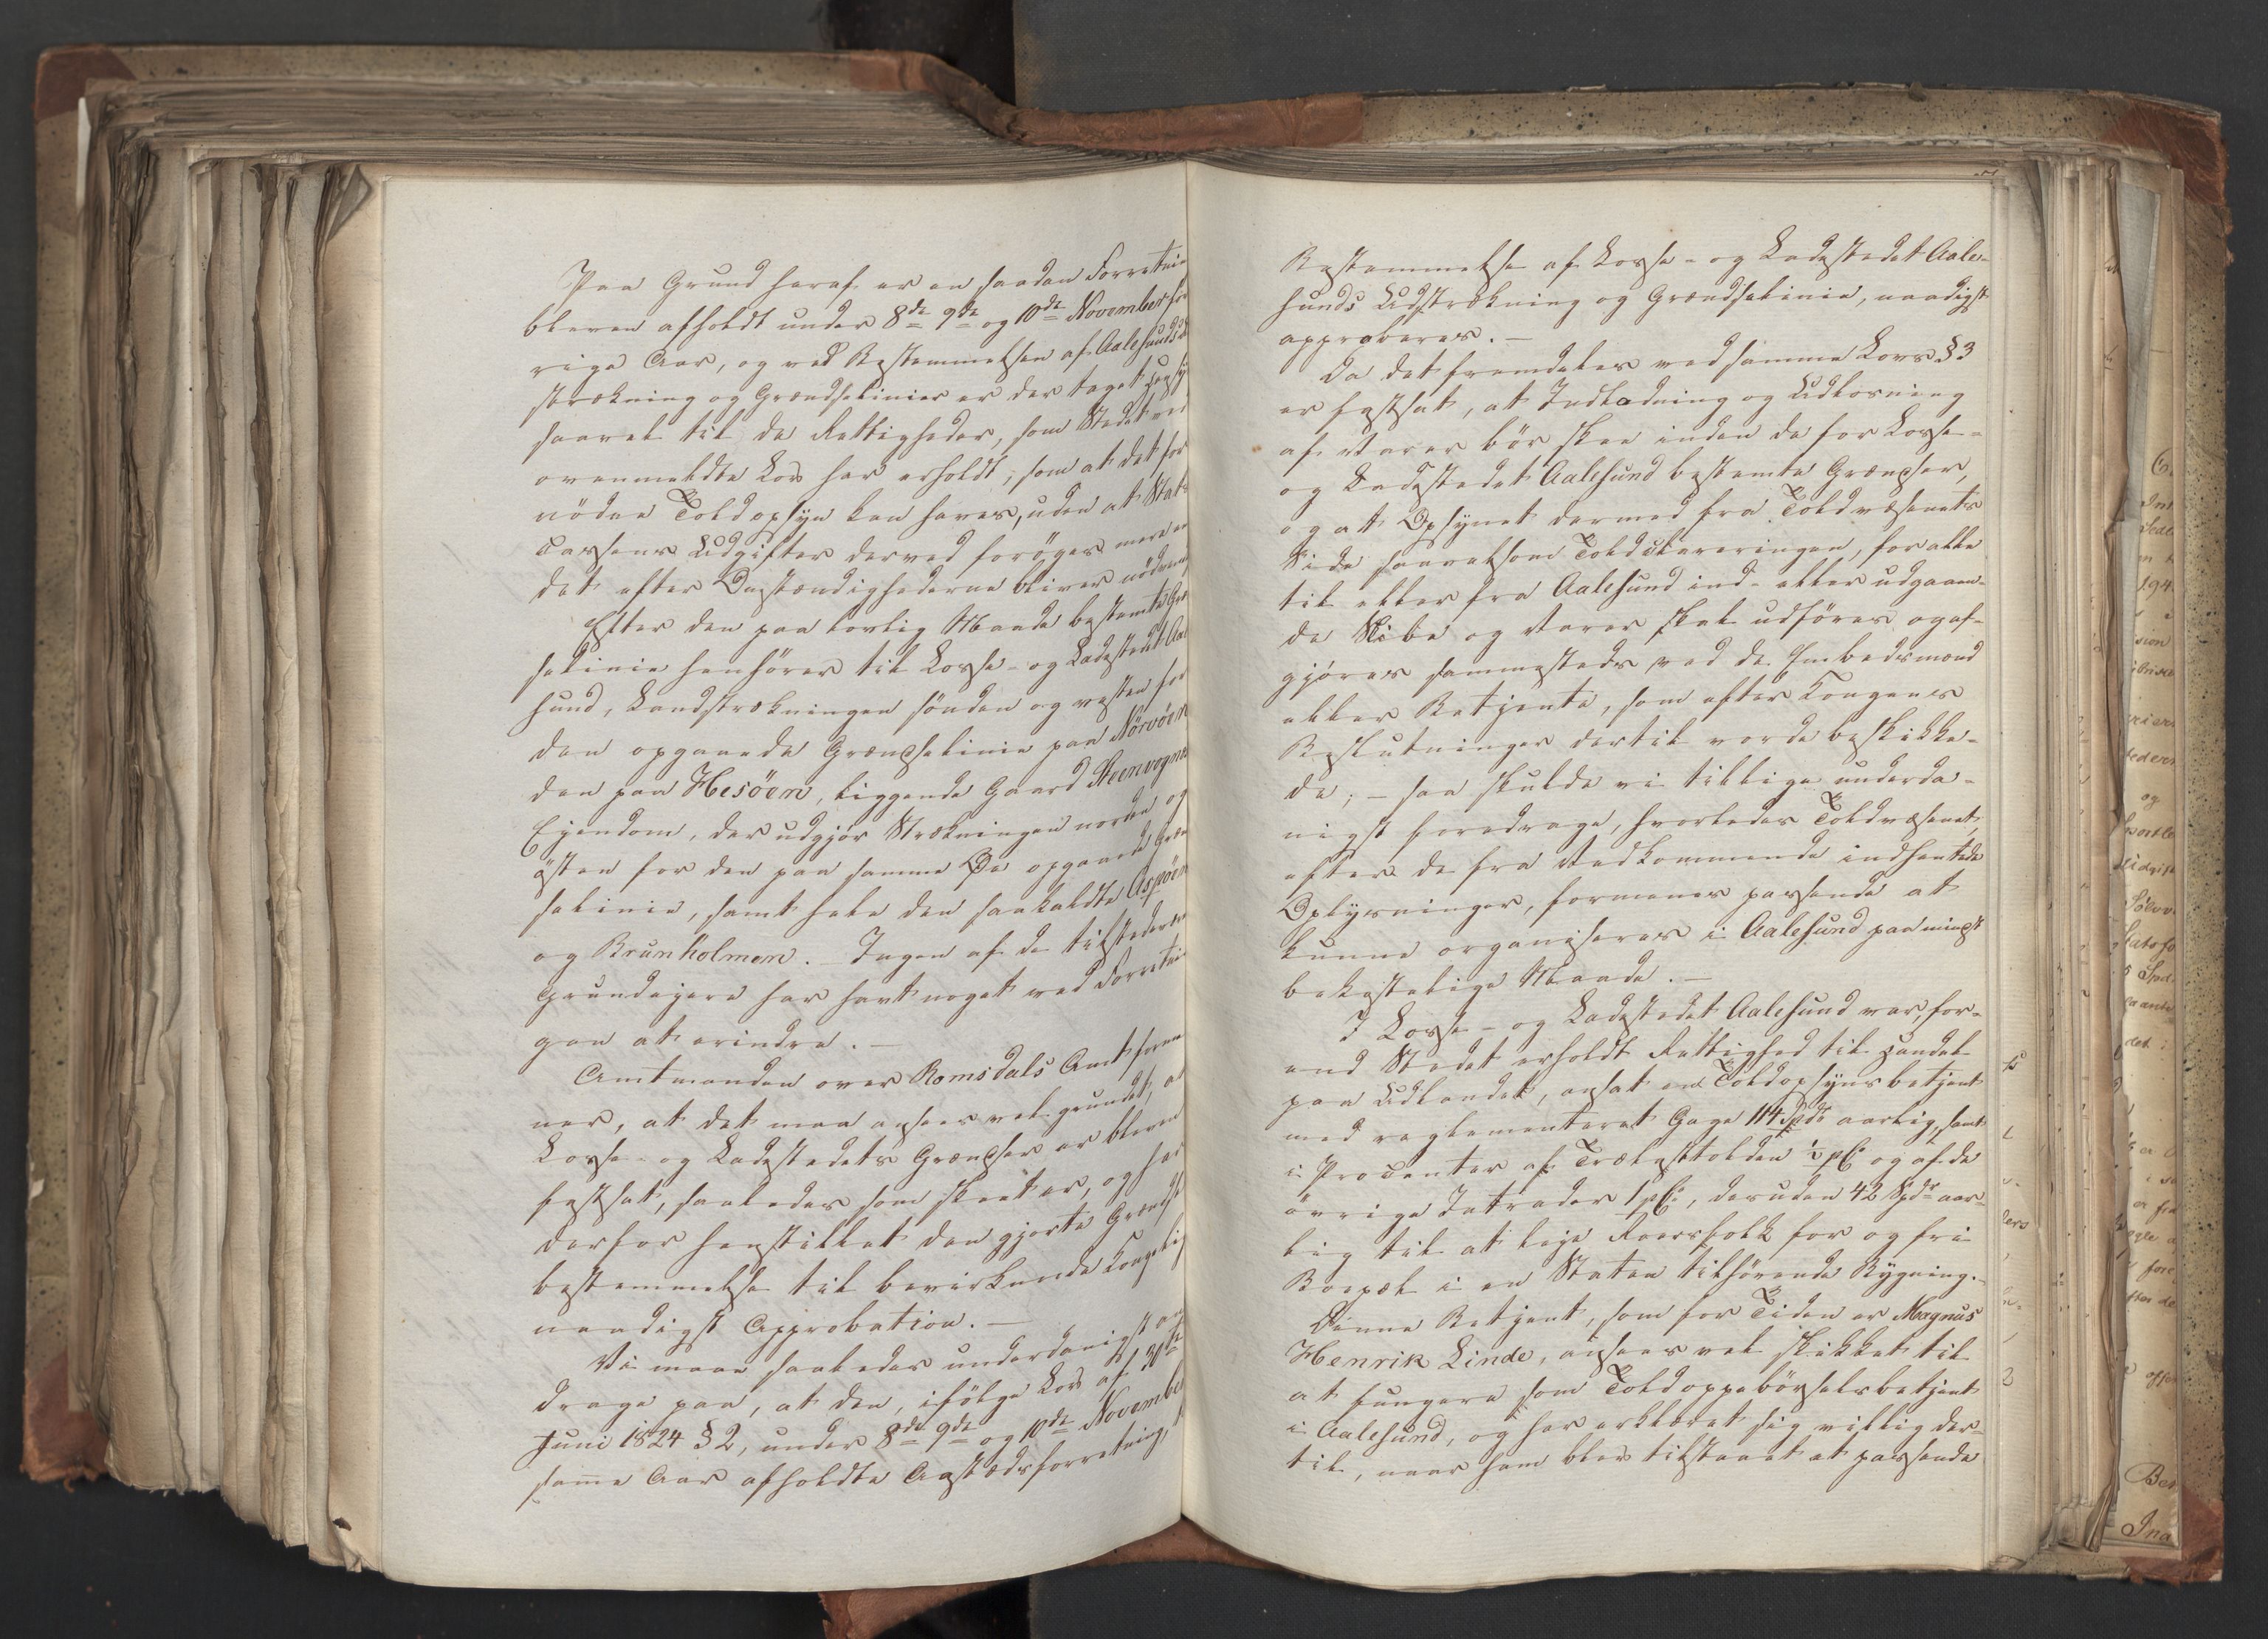 Paa Grund heraf er en saadan Forretnin
bleven afholdt under 8de 9de og 10de November for
rige Aar, og ved Bestemmelsen af Aalesunds Ud
strækning og Grændselinier er der taget Hensy
saavel til de Rettigheder, som Stedet ved
ovenmeldte Lov har erholdt, som at det for
nödne Toldopsyn kan haves, uden at Stats
Cassens Udgifter derved foröges mere en
det efter Omstændighederne bliver nödven
Efter den paa lovlig Maade bestemte Græn
selinie henhörer til Losse- og Ladestedet Aale
sund, Landstrækningen sönden og vesten for
den opgaaede Grændselinie paa Nörvöen
den paa Hesöen, liggende Gaard Steenvogns
Ejendom, der udgjör Strækningen norden og
östen for den paa samme Öe opgaaede Græn
selinie, samt hele den saakaldte Aspöen
og Brunholmen. – Ingen af de tilstedevæ
Grundejere har havt noget ved Forretnin
gen at erindre. –
Amtmanden over Romsdals Amt forme
ner, at det maa ansees vel grundet, at
Losse- og Ladestedets Grændser er bleven
fastsat, saaledes som skeet er, og har
derfor henstillet den gjorte Grændse
bestemmelse til bevirkende Kongelig
naadigst Approbation. –
Vi maae saaledes underdanigst an
drage paa, at den, ifölge Lov af 30te
Juni 1824 § 2, under 8de 9de og 10de November
samme Aar afholdte Aastædsforretning,
Bestemmelse af Losse- og Ladestedet Aale-
sunds Udstrækning og Grændselinie, naadigst
approberes. –
Da det fremdeles ved samme Lovs § 3
er fastsat, at Indladning og Udlosning
af Varer bör skee inden de for Losse-
og Ladestedet Aalesund bestemte Grændser,
og at Opsynet dermed fra Toldvæsenets
Side saavelsom Toldklareringen, for alle
til eller fra Aalesund ind- eller udgaaen-
de Skibe og Varer skal udföres og af-
gjöres sammesteds ved de Embedsmænd
eller Betjente, som efter Kongens
Beslutninger dertil vorde beskikke-
de; – saa skulde vi tillige underda-
nigst foredrage, hvorledes Toldvæsenet,
efter de fra Vedkommende indhentede
Oplysninger, formenes passende at
kunne organiseres i Aalesund paa mindst
bekostelige Maade. –
I Losse- og Ladestedet Aalesund var, for-
end Stedet erholdt Rettighed til Handel
paa Udlandet, ansat en Toldopsynsbetjent
med reglementeret Gage 114 Spdr aarlig, samt
i Procenter af Trælasttolden ½ pCt og af de
övrige Intrader 1 pCt, desuden 42 Spdr aar-
lig til at leje Roersfolk for og fri
Boepæl i en Staten tilhörende Bygning. –
Denne Betjent, som for Tiden er Magnus
Henrik Linde, ansees vel skikket til
at fungere som Toldoppebörselsbetjent
i Aalesund, og har erklæret sig villig der-
til, naar ham blev tilstaaet et passende